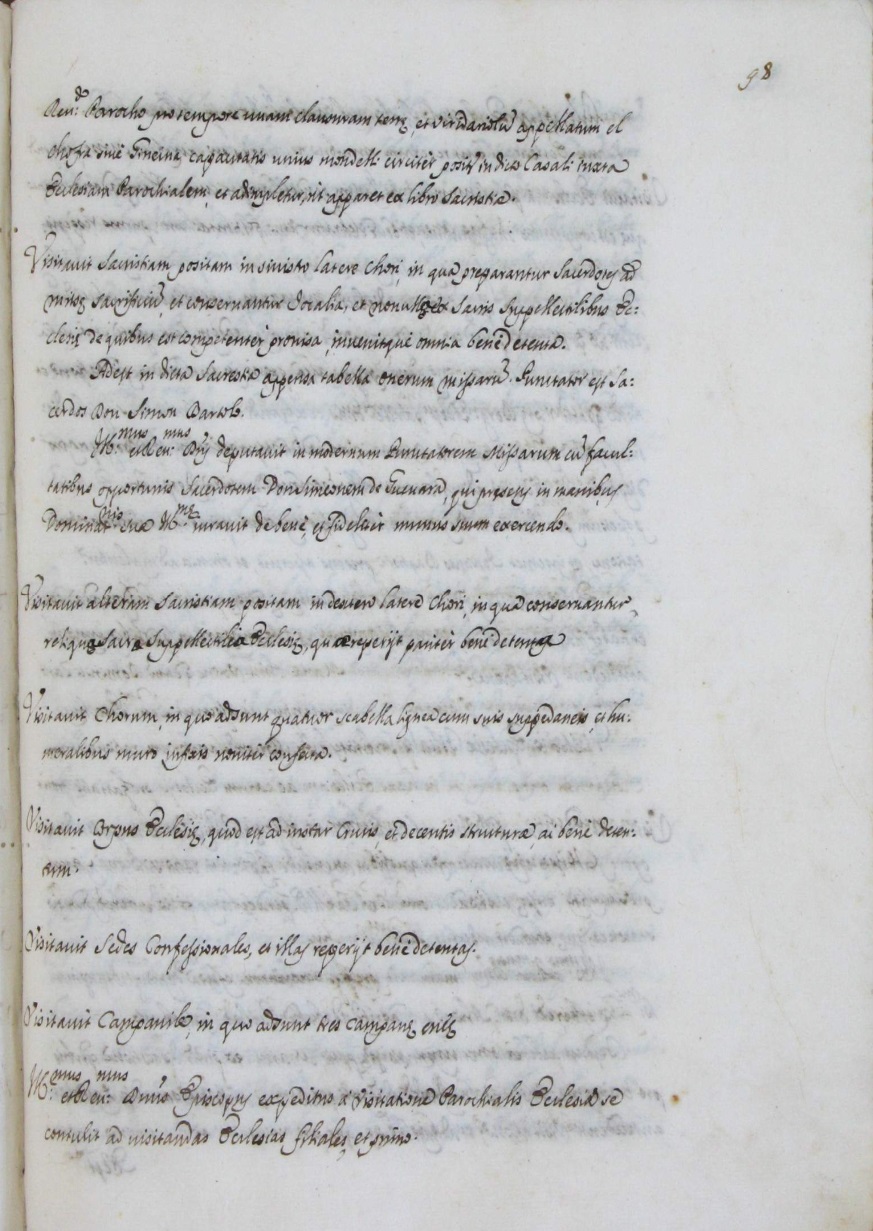 98
Reu:do Parocho pro tempore unam clausuram terrę, et viridariolũ appellatum el
capacitatis unius mondelli circitèr posit in dicto Casali iuxta
Ecclesiam Parochialem, et adimpletur, ut apparet ex libro Sacristiæ.
Visitauit Sacristiam positam in sinistro latere Chori, in qua preparantur Sacerdotes ad
missę sacrificiũ, et conseruantur Iocalia, et nonullę ex Sacris Suppellectilibus Ec:
clesię de quibus est competentèr prouisa, inuenitquè omnia benè detenta.
Adest in dicta Sacrestia appensa tabella onerum missarũ. Punctator est Sa:
cerdos Don Simon Bartolo.
Ill:mus et Reu:mus Dñs deputauit in modernum Punctatorem Missarum cũ facul:
tatibus opportunis Sacerdotem Don Simeonem de Gueuara, qui presens in manibus
Dominat:nis suæ Ill:mę iurauit de benè, et fidelitèr munus suum exercendo.
Visitauit alteram Sacristiam positam in dextero latere Chori, in qua conseruantur
reliquæ Sacræ Suppellectilia Ecclesię, quæ reperijt paritèr benè detenta
Visitauit Chorum, in quo adsunt quatuor scabella lignea cum suis suppedaneis, et hu:
meralibus muro infixis nouitèr confecta.
Visitauit Corpus Ecclesię, quod est ad instar Crucis, et decentis structuræ, ac benè deten:
tum.
Visitauit Sedes Confessionales, et illas reperijt benè detentas.
Visitauit Campanile, in quo adsunt tres campanę enęę
Ill:mus et Reu:mus Dnũs Episcopus expeditus a visitatione Parochialis Ecclesiæ se
contulit ad uisitandas Ecclesias filiales, et primo.